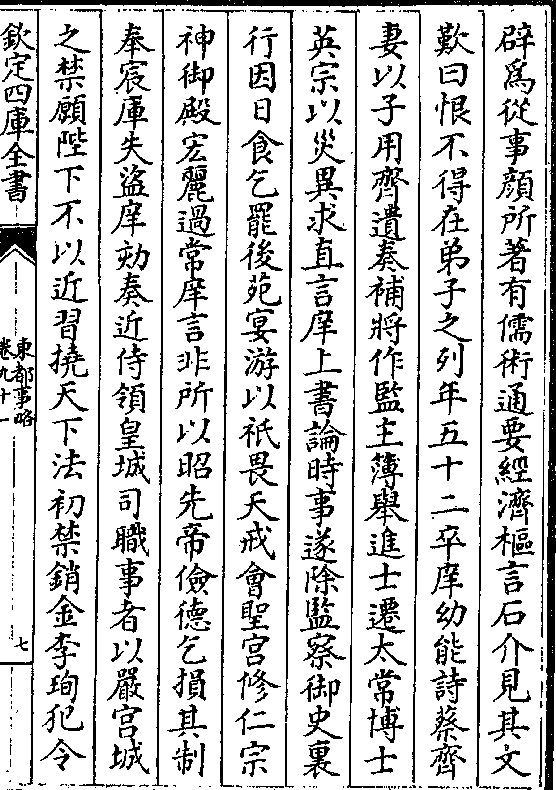 辟為從事顔所著有儒術通要經濟樞言石介見其文
歎曰恨不得在弟子之列年五十二卒庠幼能詩蔡齊
妻以子用齊遺奏補將作監主簿舉進士遷太常博士
英宗以災異求直言庠上書論時事遂除監察御史裏
行因日食乞罷後苑宴游以祇畏天戒會聖宮修仁宗
神御殿宏麗過常庠言非所以昭先帝儉德乞損其制
奉宸庫失盜庠劾奏近侍領皇城司職事者以嚴宮城
之禁願陛下不以近習撓天下法初禁銷金李珣犯令
欽定四庫全書
東都事略
卷九十一
七